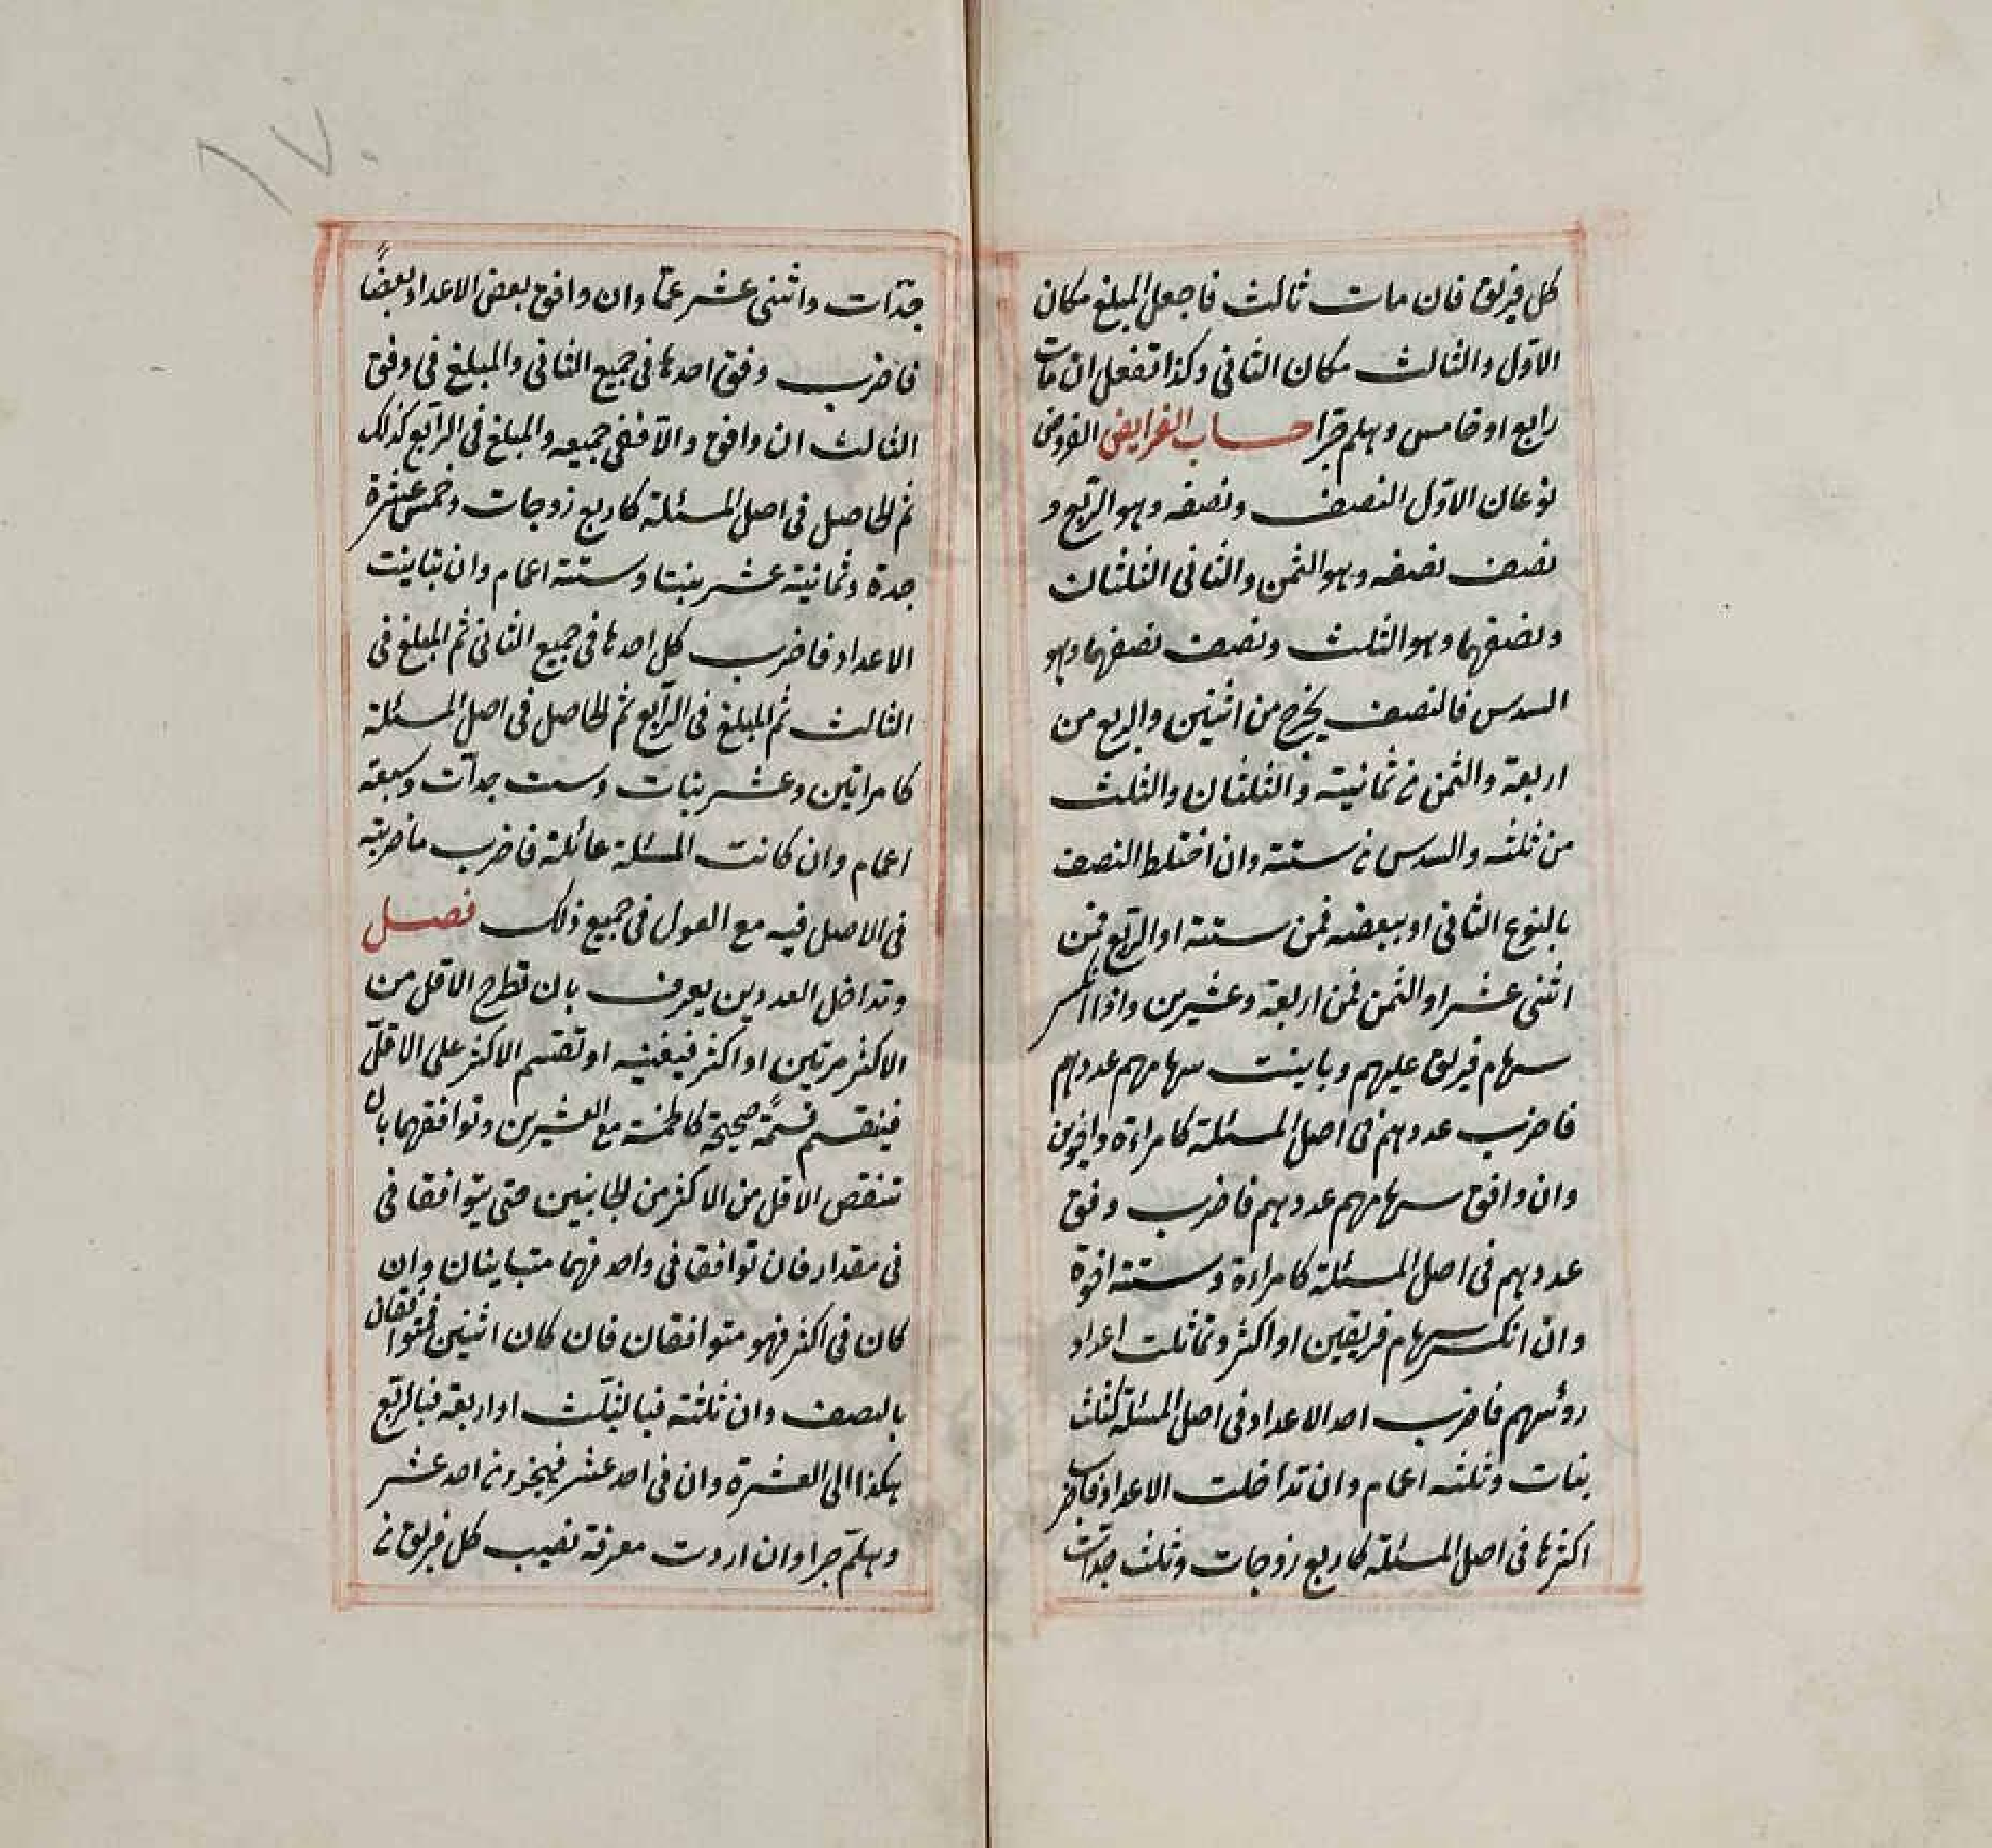 كل فريق فان مات ثالث فاجعل المبلغ مكان
الاوّل والثالث مكان الثاني وكذا تفعل ان مات
رابع او خامس وهلم جرّا حساب الفرايض الفروض
نوعان الاوّل النصف ونصفه وهو الربع و
نصف نصفه وهو الثمن والثاني الثلثان
ونصفهما وهو الثلث ونصف نصفهما وهو
السدس فالنصف يخرج من اثنين والربع من
اربعة والثمن من ثمانية والثلثان والثلث
من ثلثه والسدس من ستة وان اختلط النصف
بالنوع الثاني او ببعضه فمن ستة او الربع فمن
اثنى عشر او الثمن فمن اربعة وعشرين واذا انكسر
سهام فريق عليهم وباينت سهامهم عددهم
فاضرب عددهم في اصل المسئلة كامراءة واخوين
وان وافق سهامهم عددهم فاضرب وفق
عددهم في اصل المسئلة كامراءة وستة اخوة
وان انكسر سهام فريقين او اكثر وتماثلت اعداد
رؤسهم فاضرب احد الاعداد في اصل المسئلة كثلث
بنات وثلثه اعمام وان تداخلت الاعداد فاضرب
اكثرها في اصل المسئلة كاربع زوجات وثلث جدات
١٧٠
جدّات واثنى عشر عمّا وان وافق بعض الاعداد بعضاً
فاضرب وفق احدها في جميع الثاني والمبلغ في وفق
الثالث ان وافق والّا ففي جميعه والمبلغ في الرابع كذلك
ثم الحاصل في اصل المسئلة كاربع زوجات وخمس عشرة
جدة وثمانية عشر بنتا وستة اعمام وان تباينت
الاعداد فاضرب كل احدها في جميع الثاني ثم المبلغ في
الثالث ثم المبلغ في الرابع ثم الحاصل في اصل المسئلة
كامراتين وعشر بنات وست جدات وسبعة
اعمام وان كانت المسئلة عائلة فاضرب ما ضربته
في الاصل فيه مع العول في جميع ذلك فصل
وتداخل العددين يعرف بان تطرح الاقل من
الاكثر مرتين او اكثر فيفنيه او تقسم الاكثر على الاقلّ
فينقسم قسمةً صحيحة كالخمسة مع العشرين وتوافقهما بان
تنقص الاقل من الاكثر من الجانبين حتى يتوافقا في
في مقدار فان توافقا في واحد فهما متباينان وان
كان في اكثر فهو متوافقان فان كان اثنين فمتوافقان
بالنصف وان ثلثة فبالثلث او اربعة فبالربع
هكذا الى العشرة وان في احد عشر فبجزء من احد عشر
وهلمّ جرا وان اردت معرفة نصيب كل فريق من